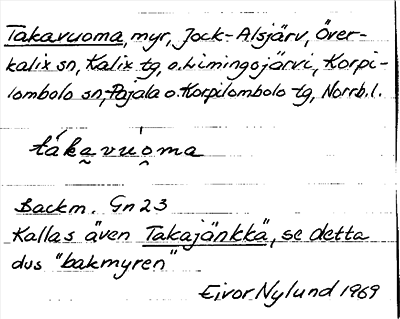 Takavuoma, myr, Jock-Alsjärv, Över-
kalix sn, Kalix tg, o. Limingojärvi, Korpi-
lombolo sn, Pajala o. Korpilombolo tg, Norrb.l.
tákavuòma
Backm. Gn 23
Kallas även Takajänkkä, se detta
dus "bakmyren"
Eivor Nylund 1969